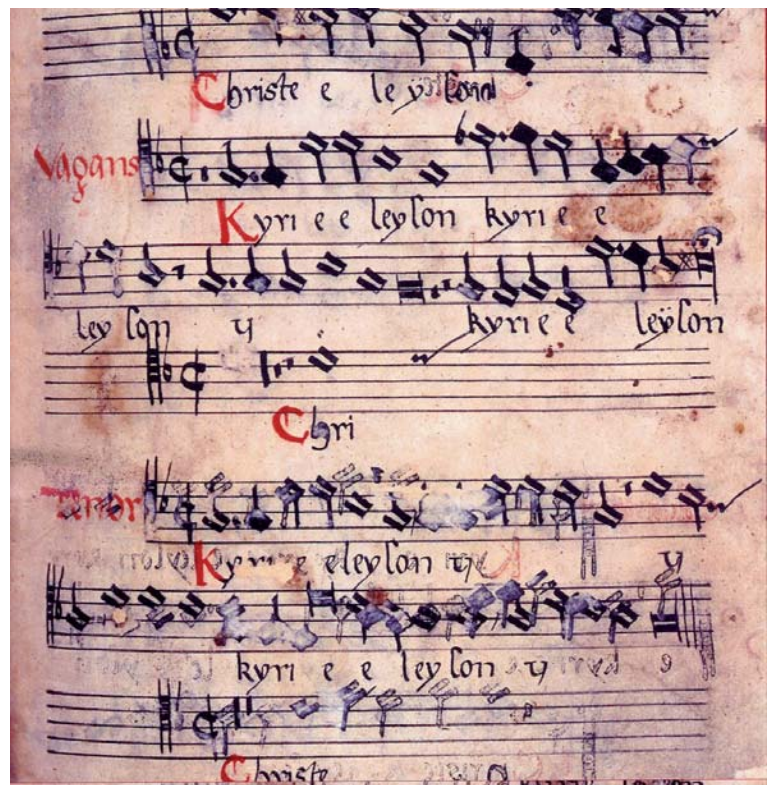 Christe e leyson
Vagans
Kyri e e leyson kyri e e
ley son ij kyri e e leyson
Chri
Tenor
Kyri e eleyson ij ij
kyri e e leyson ij
Christe